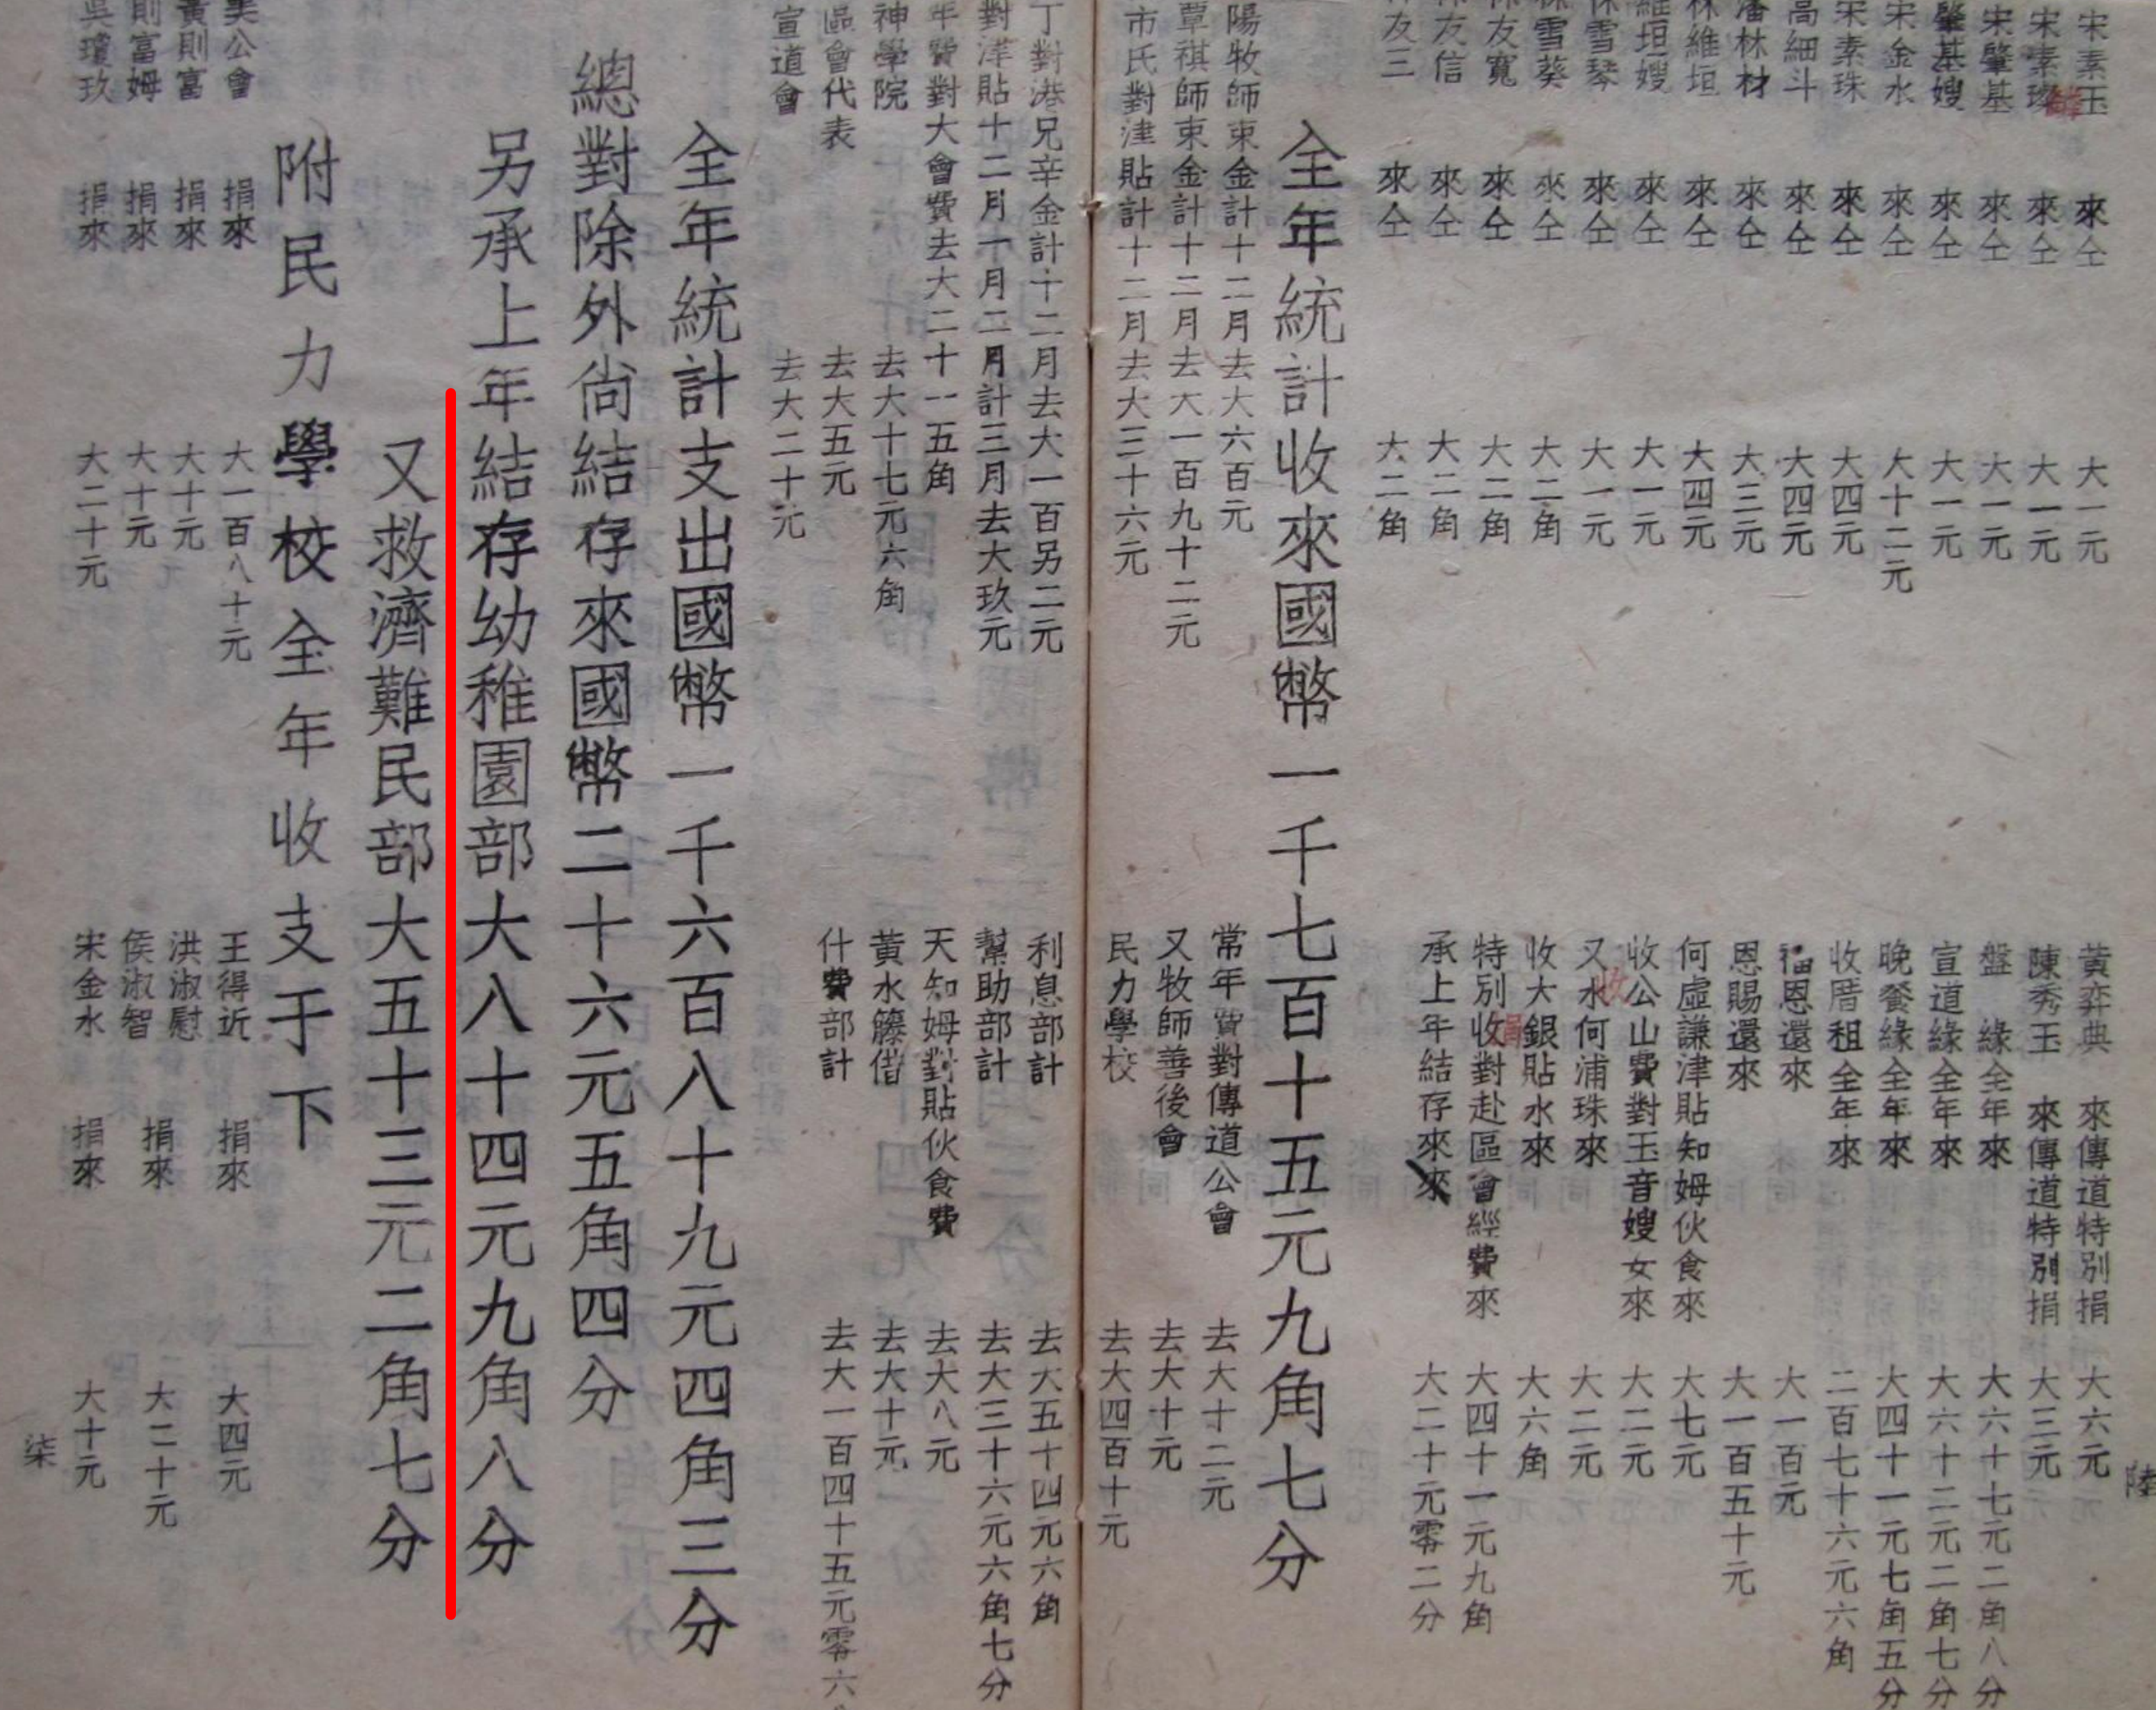 宋素玉 來仝 大一元
宋素 來仝 大一元
宋肇基 來仝 大一元
肇基嫂 來仝 大一元
宋金水 來仝 大十二元
宋素珠 來仝 大四元
高細斗 來仝 大四元
潘林材 來仝 大三元
林維垣 來仝 大四元
維垣嫂 來仝 大一元
雪琴 來仝 大一元
雪葵 來仝 大二角
友寬 來仝 大二角
友信 來仝 大二角
友三 來仝 大二角
黃弈典 來傳道特別捐 大六元
陳秀玉 來傳道特別捐 大三元
盤 緣全年來 大六十七元二角八分
宣道緣全年來 大六十二元二角七分
晚餐緣全年來 大四十一元七角五分
收厝租全年來 二百七十六元六角
福恩還來 大一百元
恩賜還來 大一百五十元
何虛謙津貼知姆伙食來 大七元
收公山費對玉音嫂女來 大二元
又水何浦珠來 大二元
收大銀貼水來 大六角
特別收對赴區會經費來 大四十一元九角
承上年結存來來 大二十元零二分
陸
全年統計收來國幣一千七百十五元九角七分
陽牧師束金計十二月去大六百元
覃祺師束金計十二月去大一百九十二元
市氏對津貼計十二月去大三十六元
常年費對傳道公會 去大十二元
又牧師善後會 去大十元
民力學校 去大四百十元
丁對港兄辛金計十二月去大一百另二元
對津貼十二月一月二月計三月去大玖元
年費對大會費去大二十一五角
神學院 去大十七元六角
區會代表 去大五元
宣道會 去大二十元
利息部計 去大五十四元六角
幫助部計 去大三十六元六角七分
天知姆對貼伙食費 去大八元
黃水籐借 去大十元
什費部計 去大一百四十五元零六
全年統計支出國幣一千六百八十九元四角三分
總對除外尚結存來國幣二十六元五角四分
另承上年結存幼稚園部大八十四元九角八分
又救濟難民部大五十三元二角七分
附民力學校全年收支于下
美公會 捐來 大一百八十元
黃則富 捐來 大十元
則富姆 捐來 大十元
吳瓊玖 捐來 大二十元
王得近 捐來 大四元
洪淑慰
侯淑智 捐來 大二十元
宋金水 捐來 大十元
柒